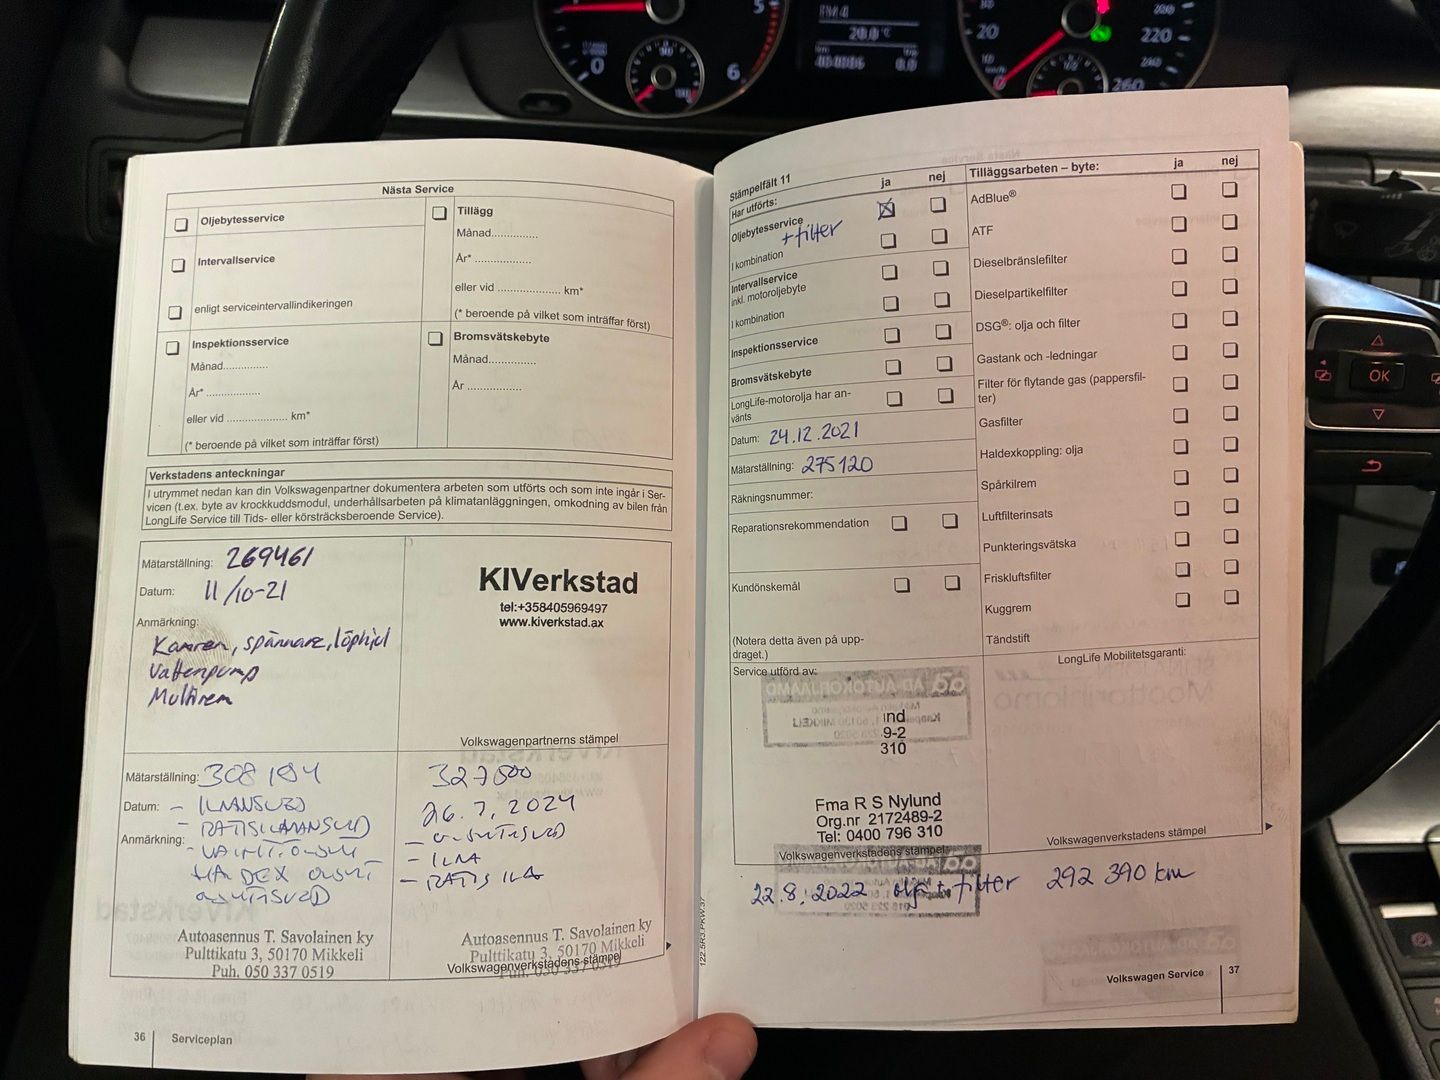 5
6
0
20.0°C
0.0
20
200
220
240
260
OK
Nästa Service
Oljebytesservice
Intervallservice
enligt serviceintervallindikeringen
Inspektionsservice
Månad...............
År* ..................
eller vid .................... km*
(* beroende på vilket som inträffar först)
Tillägg
Månad...............
År* ..................
eller vid .................... km*
(* beroende på vilket som inträffar först)
Bromsvätskebyte
Månad...............
År ..................
Verkstadens anteckningar
I utrymmet nedan kan din Volkswagenpartner dokumentera arbeten som utförts och som inte ingår i Ser-
vicen (t.ex. byte av krockkuddsmodul, underhållsarbeten på klimatanläggningen, omkodning av bilen från
LongLife Service till Tids- eller körsträcksberoende Service).
Mätarställning: 269461
Datum: 11/10-21
Anmärkning:
Kamrem, spännare, löphjul
Vattenpump
Multirem
KIVerkstad
tel:+358405969497
www.kiverkstad.ax
Volkswagenpartnerns stämpel
Mätarställning: 308194
Datum:
Anmärkning:
- ILMANSUOD
- RATISILMANSUOD
HALDEX
Autoasennus T. Savolainen ky
Pulttikatu 3, 50170 Mikkeli
Puh. 050 337 0519
327500
26.7.2024
- ILMA
- RATIS ILA
Autoasennus T. Savolainen ky
Pulttikatu 3, 50170 Mikkeli
Puh. 050 337 0519
Volkswagenverkstadens stämpel
36
Serviceplan
Stämpelfält 11
Har utförts:
ja
nej
Oljebytesservice
+ filter
I kombination
Intervallservice
inkl. motoroljebyte
I kombination
Inspektionsservice
Bromsvätskebyte
LongLife-motorolja har an-
vänts
Datum: 24.12.2021
Mätarställning: 275120
Räkningsnummer:
Reparationsrekommendation
Kundönskemål
(Notera detta även på upp-
draget.)
Service utförd av:
ind
9-2
310
Fma R S Nylund
Org.nr 2172489-2
Tel: 0400 796 310
Volkswagenverkstadens stämpel
Tilläggsarbeten – byte:
ja
nej
AdBlue®
ATF
Dieselbränslefilter
Dieselpartikelfilter
DSG®: olja och filter
Gastank och -ledningar
Filter för flytande gas (pappersfil-
ter)
Gasfilter
Haldexkoppling: olja
Spårkilrem
Luftfilterinsats
Punkteringsvätska
Friskluftsfilter
Kuggrem
Tändstift
LongLife Mobilitetsgaranti:
Volkswagenverkstadens stämpel
22.8.2022 olja + filter 292 390 km
122.5R3.PKW.37
Volkswagen Service
37